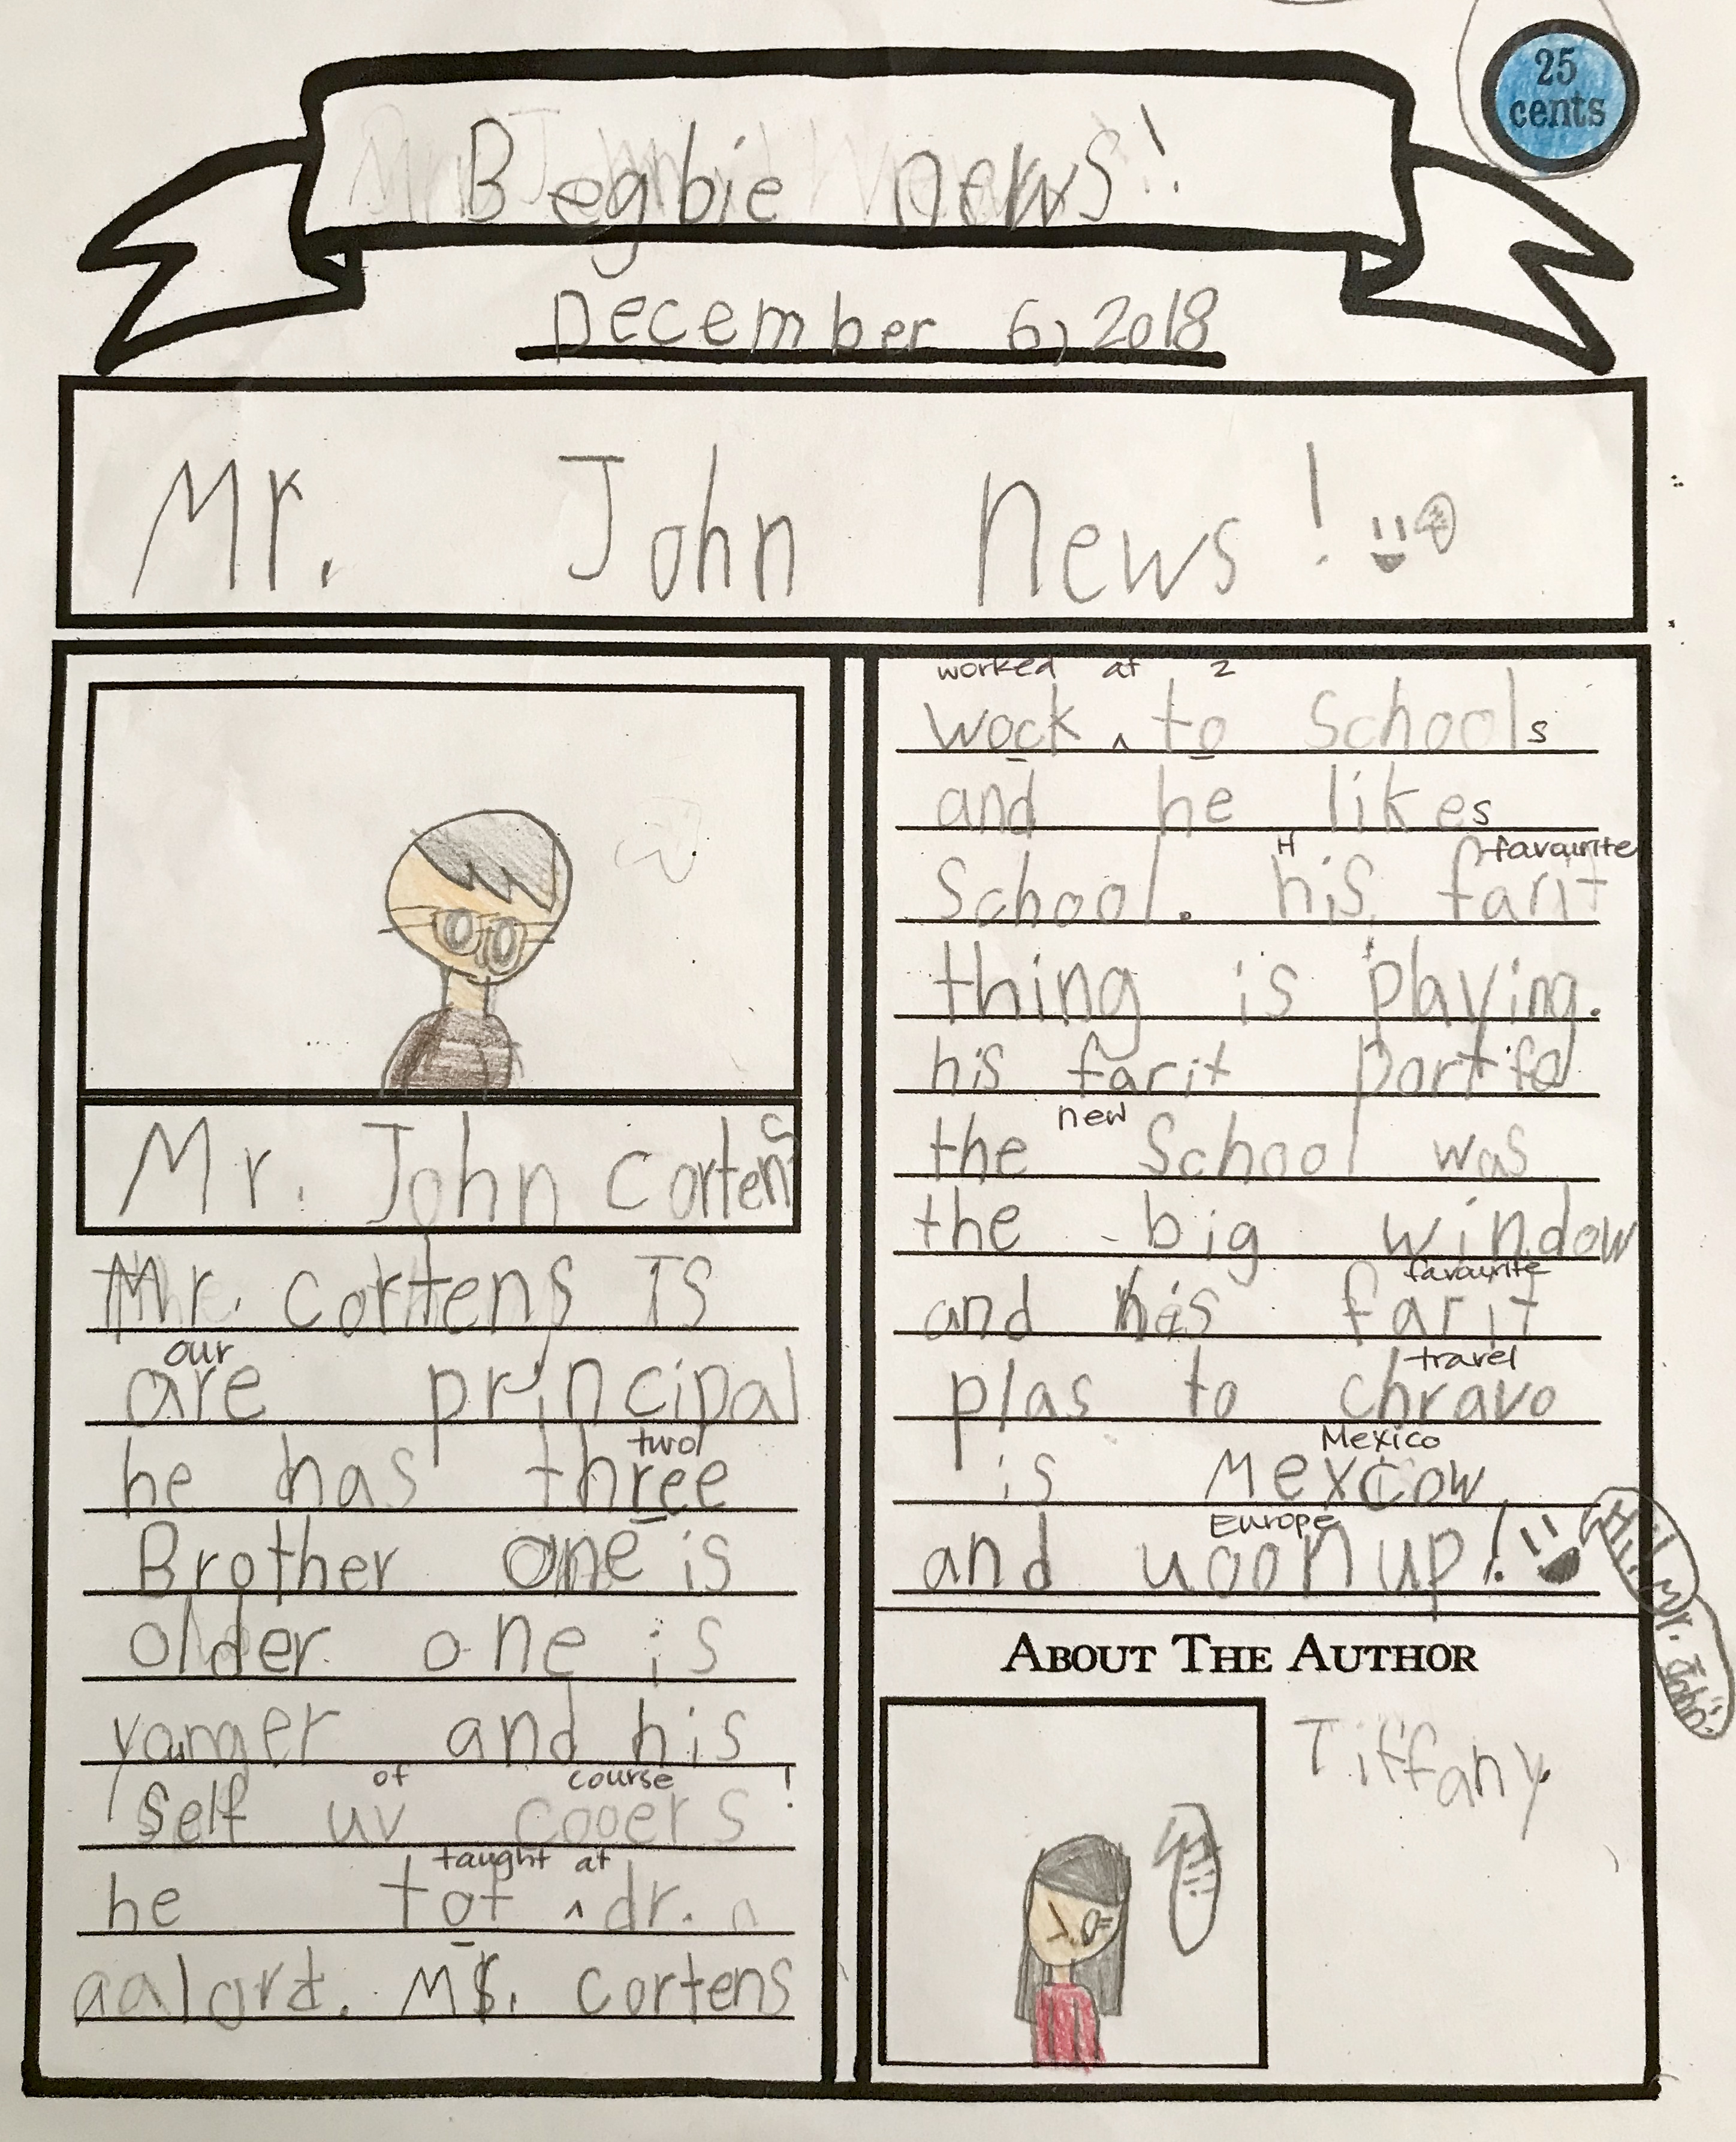 25
cents
Begbie news!
December 6, 2018
Mr. John News!
Mr. John Cortens
Mr. cortens IS
our
are principal
two
he has three
Brother one is
older one is
yonger and his
of course !
self uv cooers
taught at
he tot ^ dr. a
aalord. Ms. cortens
worked at 2
wock ^ to Schools
and he likes
H favourite
School. his farit
thing is playing.
his farit part fo
new
the School was
the big window
favourite
and his farit
travel
plas to chravo
Mexico
is Mexcow
Europe
and uoonup!
Hi! Mr. John
ABOUT THE AUTHOR
Tiffany